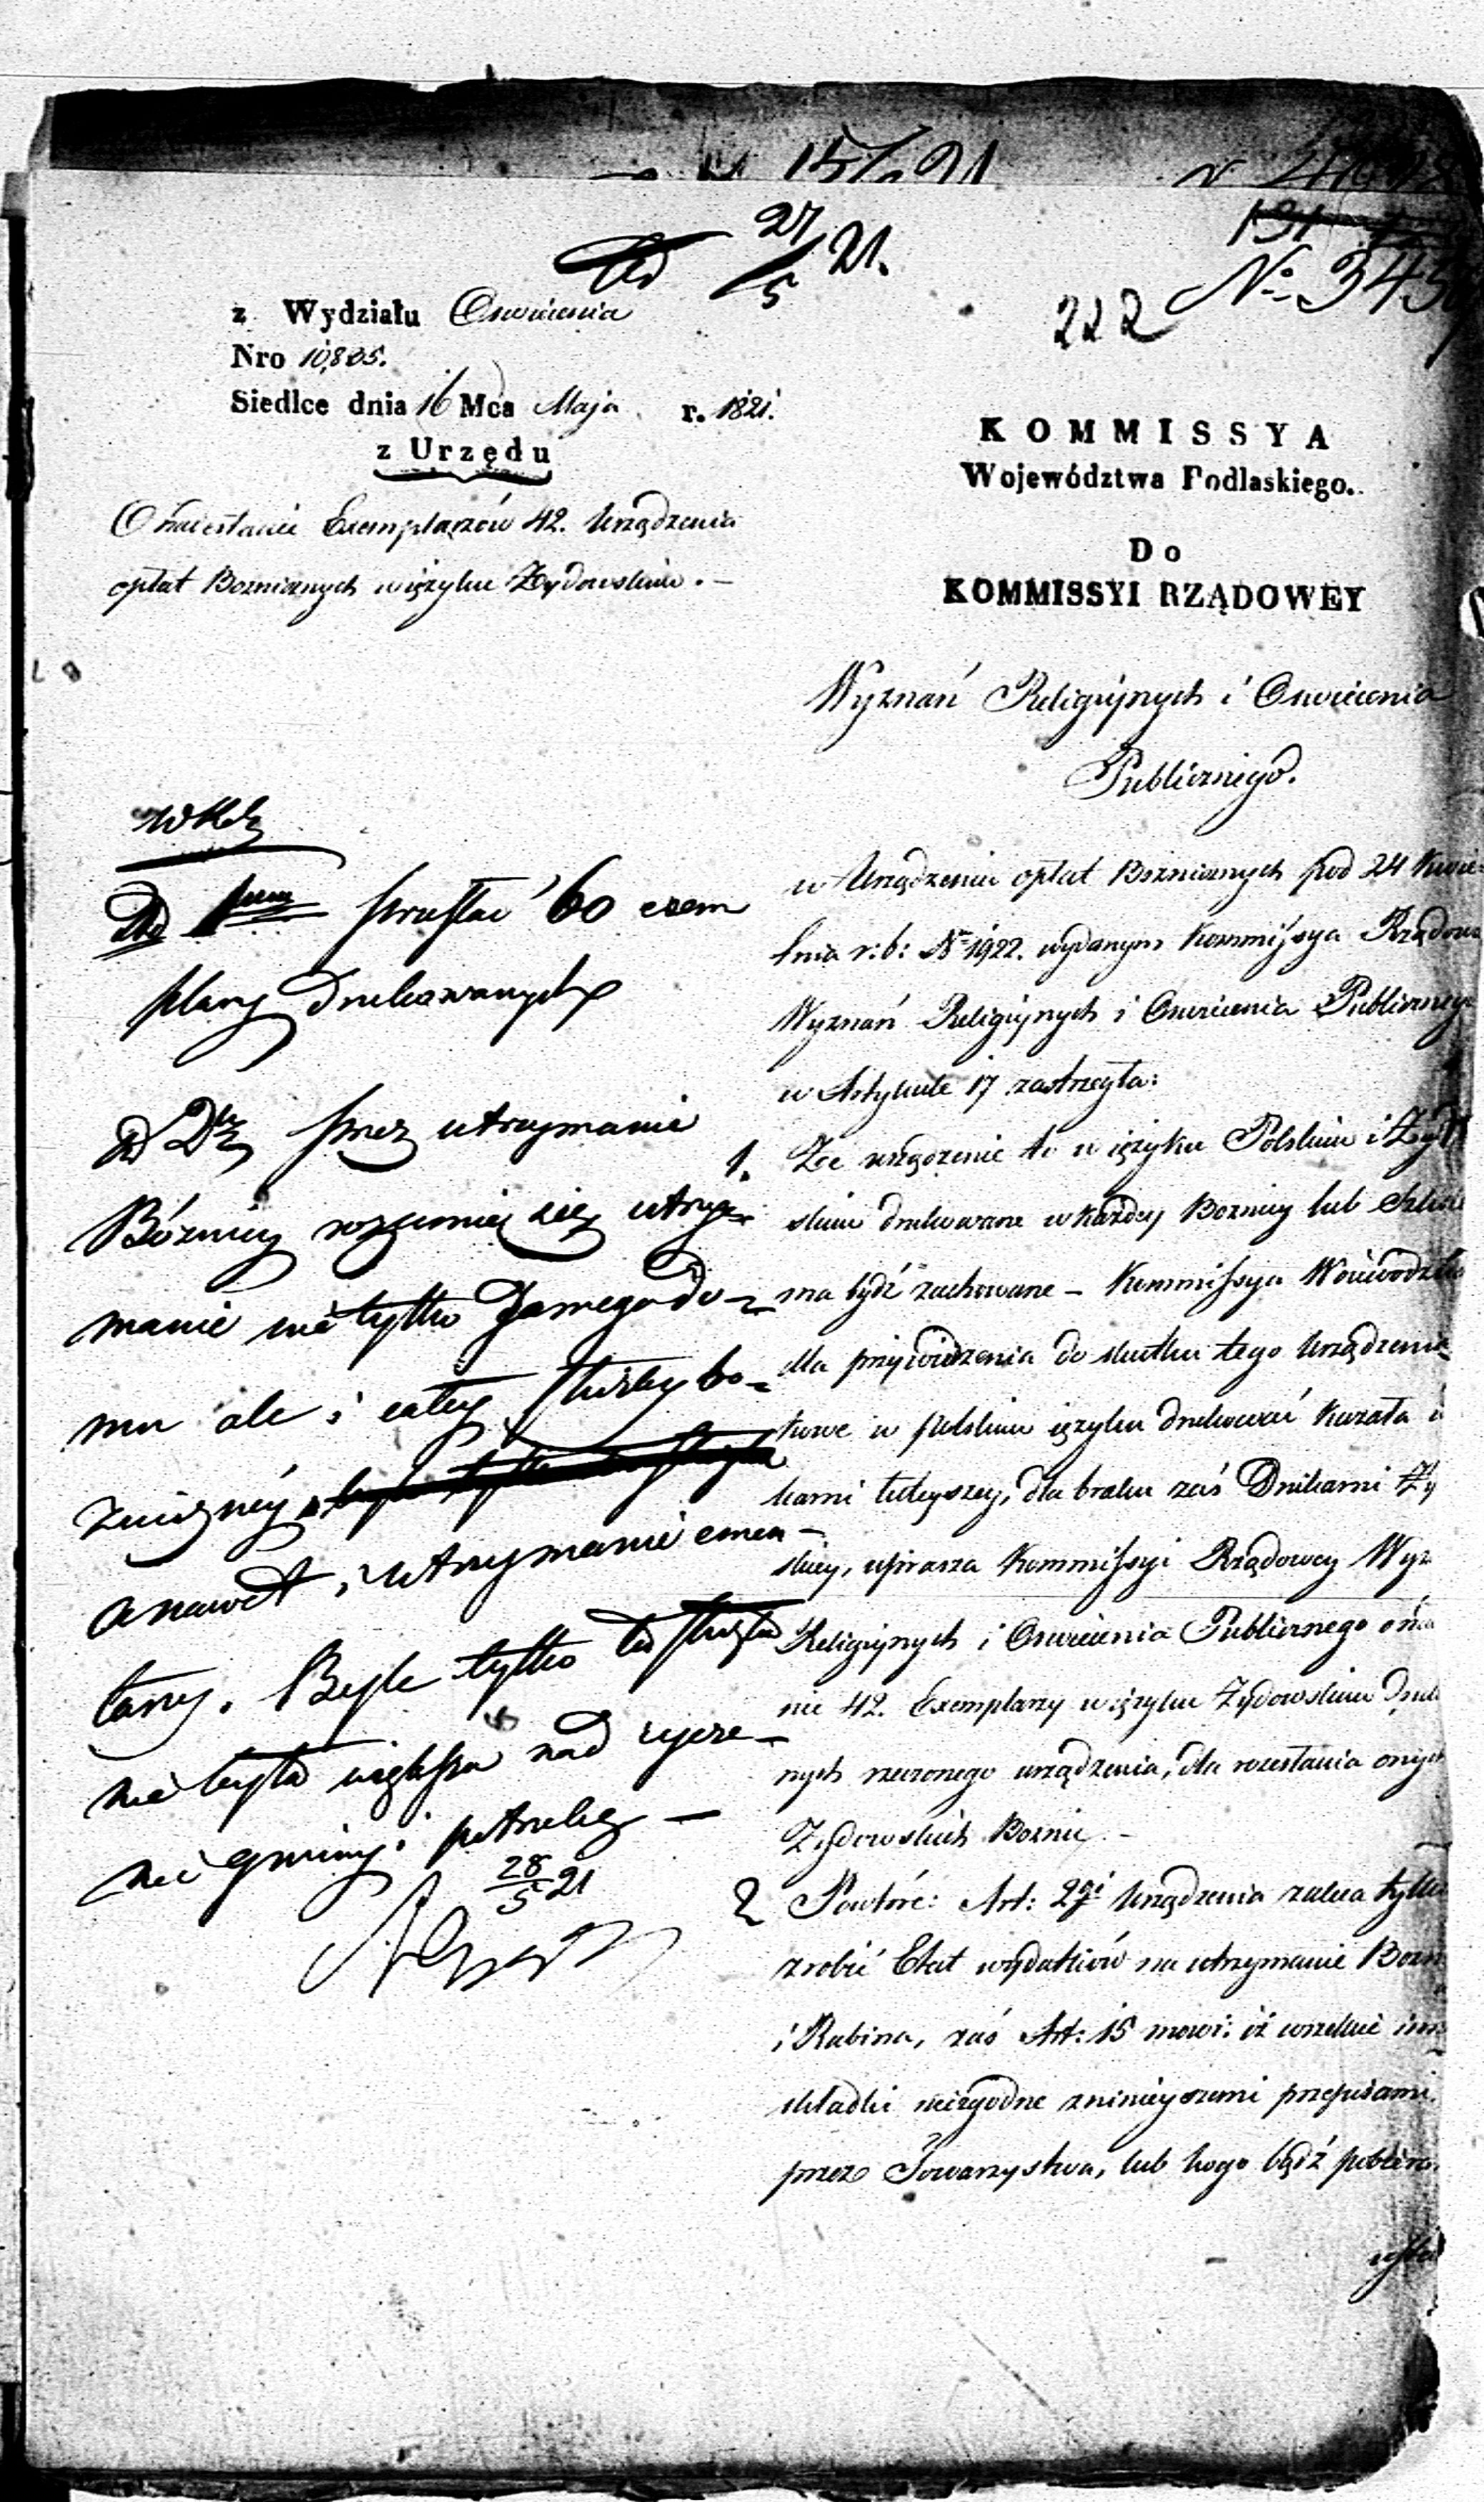 27/5 21.
N. 345
222
z Wydziału Oswiecenia
Nro 10,805.
Siedlce dnia 16 Mca Maja r. 1821.
z Urzędu
O Exemplarzów 42. Urządzenia
opłat Bożnicznych w ięzyku Żydowskim. –
KOMMISSYA
Województwa Podlaskiego.
Do
KOMMISSYI RZĄDOWEY
Wyznań Religijnych i Oswiecenia
Publicznego.
w Urządzeniu opłat Bożnicznych pod 24 Kwie-
tnia r: b: N 1922. wydanym Kommissya Rządowa
Wyznań Religijnych i Oswiecenia Publicznego
w Artykule 17 zastrzegła:
1. Że urządzenie to w ięzyku Polskim i Żyd
skim drukowane w każdey Bożnicy lub Szkole
ma bydź zachowane – Kommissya Woiewodzka
dla przywiedzenia do skutku tego Urządzenia
kowe w polskim ięzyku drukować kazała w
karni tuteyszey, dla braku zaś Drukarni Ży
skiey, uprasza Kommissyi Rządowey Wyz
Religijnych i Oswiecenia Publicznego o
nie 42. Exemplarzy w ięzyku Żydowskim Druk
nych rzeczonego urządzenia, dla rozesłania onych
Żydowskich Bożnic. –
2 Powtóre: Art: 2gi Urządzenia zaleca tylko
zrobić Etat wydatków na utrzymanie Bożn
i Rabina, zaś Art: 15 mowi: iż wszelkie inn
składki niezgodne z ninieyszemi przepisami
przez Towarzystwa, lub kogo bądź pobiera
Ad 1mum przesłać 60 exem
plarzy drukowanych
Ad 2 przez utrzymanie
Bóżnicy rozumie się utrzy-
manie nie tylko samego do-
mu ale i całey służby bo-
żniczney,
a nawet i utrzymanie cmen-
tarzy. Byle tylko ta służba
nie była większa nad rzecze-
nie gminy potrzebę –
28/5 21